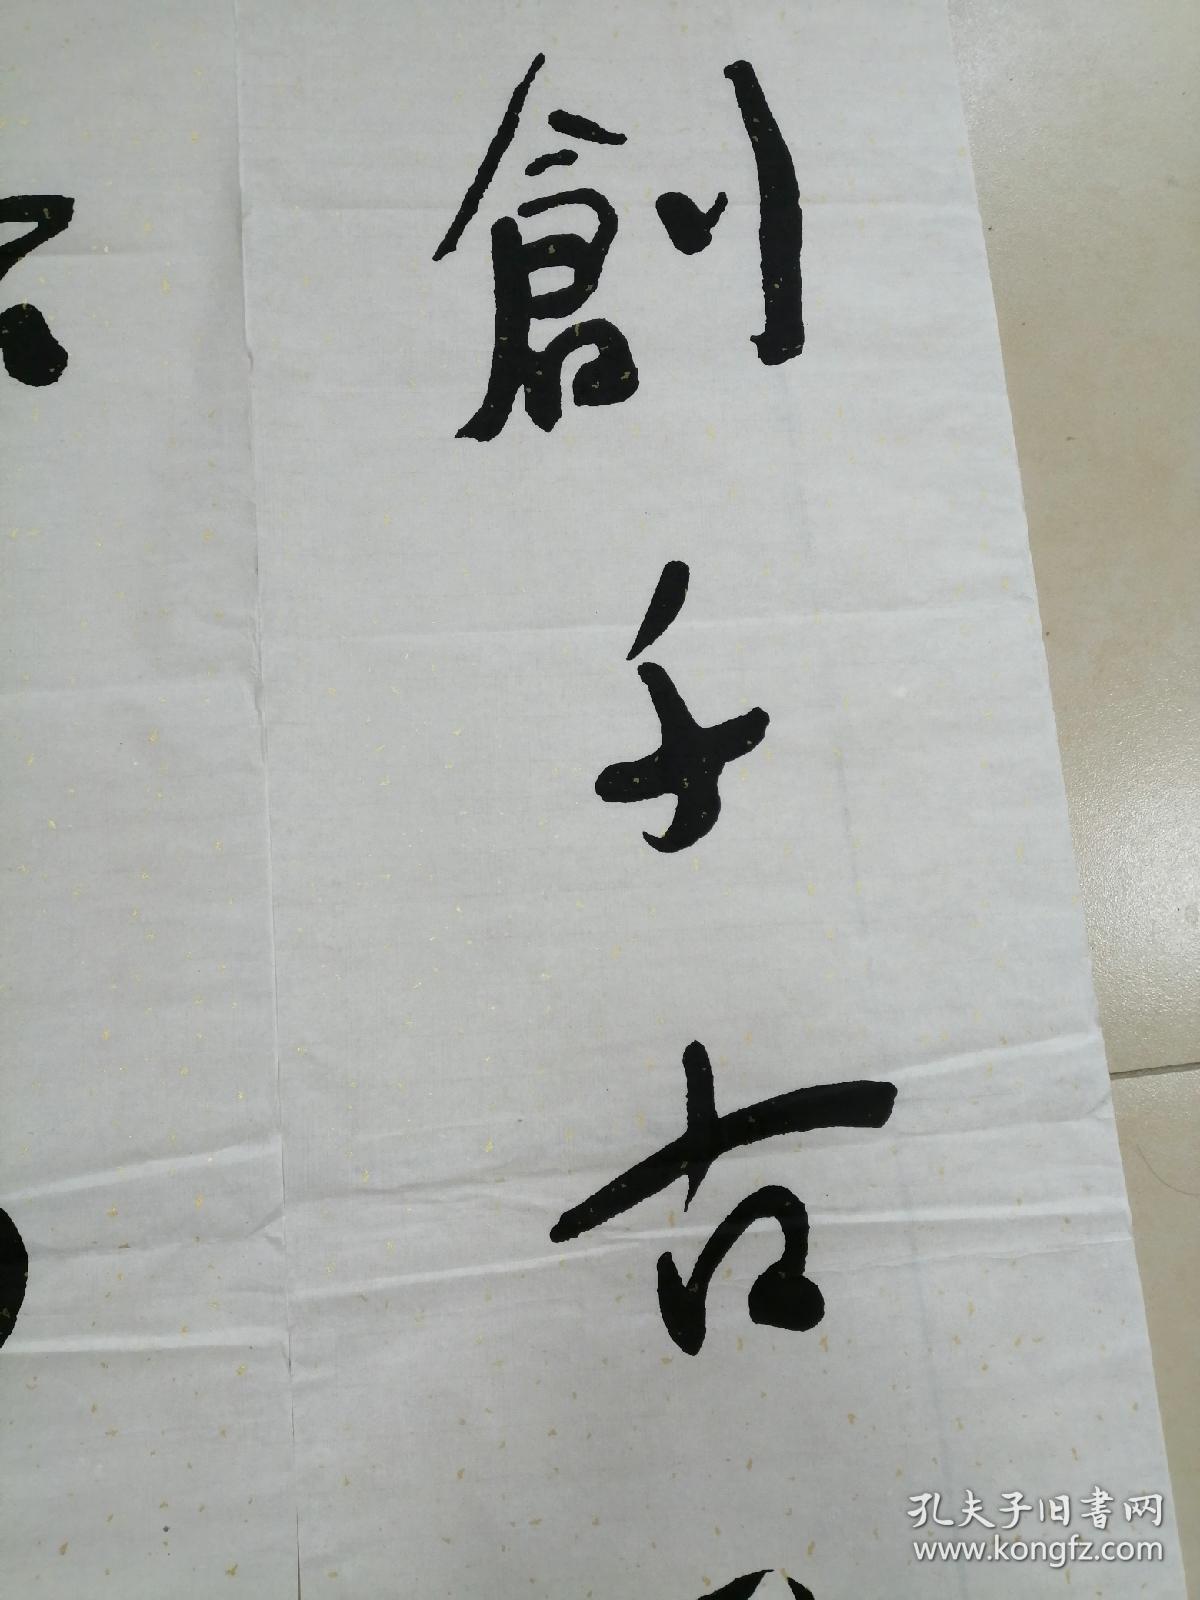 創千古
孔夫子旧書网
www.kongfz.com